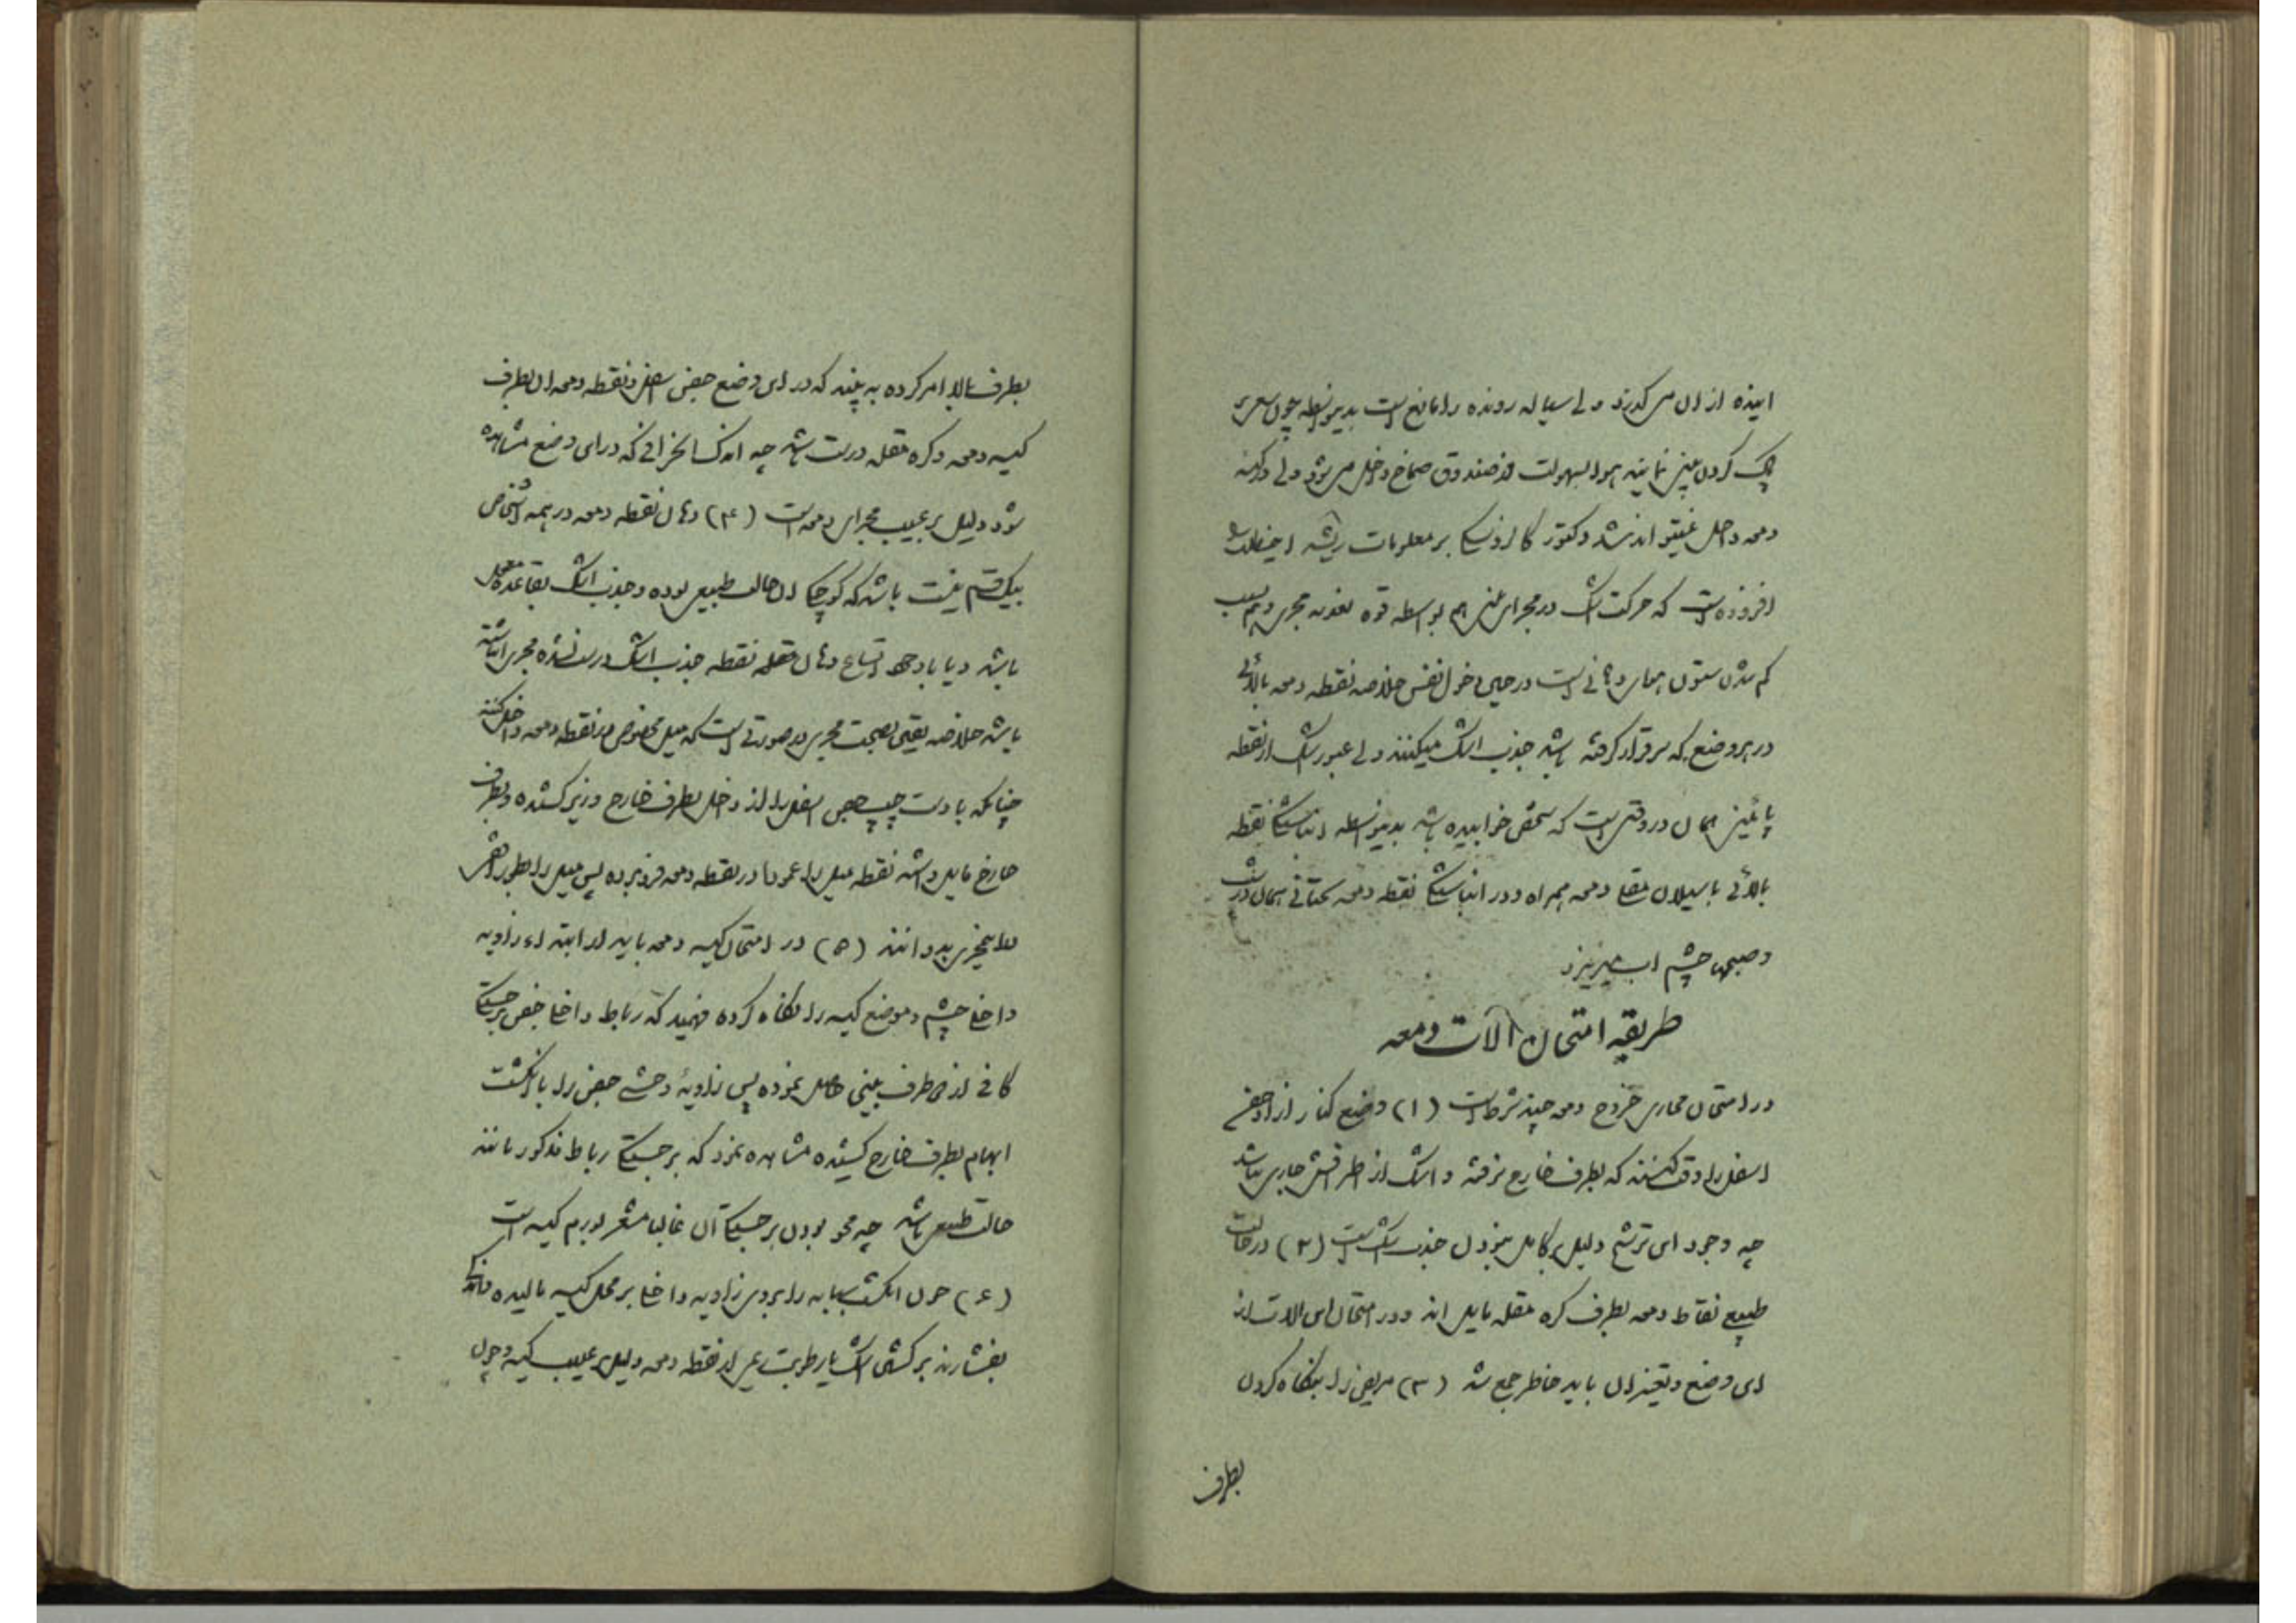 اینده از ان می گذرد ولی سیاله رونده را مانع است بدینواسطه چون سعی بر
پاک کردن بینی نمایند هوا بسهولت در صندوق صماخ داخل می شود ولی در کیسه
دمعه داخل نمیتواند شد دکتور بر معلومات ریشه
افزوده است که حرکت اشک در مجرای بینی هم بواسطه قوه نفوذ مجری و هم بسبب
کم شدن ستون است در حین دخول نفس خلاصه نقطه دمعه بالائی
در هر وضع که سر قرار گرفته باشد جذب اشک میکنند ولی عبور اشک از نقطه
پائینی همان در وقتی است که شخص خوابیده باشد بدینواسطه نقطه
بالائی با سیلان دمعه همراه و در نقطه دمعه تحتانی همان درست
و صبحها چشم اب میریزد
طریقه امتحان آلات دمعه
در امتحان مجاری خروج دمعه چند شرط است (۱) وضع کنار ازاد جفن
اسفل را دقت کنند که بطرف خارج نرفته و اشک از اطرافش جاری نباشد
چه وجود این ترشح دلیل بر کامل نبودن جذب اشک است (۲) در حالت
طبیعی نقاط دمعه بطرف کره مقله مایل اند و در امتحان این الات از
این وضع و تغییر ان باید خاطر جمع شد (۳) مریض را بنگاه کردن
بطرف
بطرف بالا امر کرده به بیند که در این وضع جفن اسفل و نقطه دمعه ان بطرف
کیسه دمعه و کره مقله درست باشد چه اندک انحرافی که در این وضع مشاهده
شود دلیل بر عیب مجرای دمعه است (۴) دهان نقطه دمعه در همه اشخاص
بیک قسم نیست باشد که کوچکی ان حالت طبیعی بوده و جذب اشک بقاعده معمول
باشد و یا با وجود اتساع دهان نقطه جذب اشک درست نشده مجری انباشته
باشد خلاصه یقین بصحت مجری در صورتی است که میل مخصوص در نقطه دمعه داخل کنند
چنانکه با دست چپ جفن اسفل را از داخل بطرف خارج و زیر کشیده و بطرف
خارج مایل داشته نقطه میل را عمودا در نقطه دمعه فرو برده پس میل را بطور افقی
بدوانند (۵) در امتحان کیسه دمعه باید از ابتداء زاویه
داخلی چشم و موضع کیسه را نگاه کرده فهمید که رباط داخلی جفن برجستگی
کافی از طرف بینی حاصل نموده پس زاویهٔ وحشی جفن را با انگشت
ابهام بطرف خارج کشیده مشاهده نمود که برجستگی رباط مذکور مانند
حالت طبیعی باشد چه محو بودن برجستگی آن غالبا مشعر بورم کیسه است
(۶) چون انگشت سبابه را بر روی زاویه داخلی بر محل کیسه مالیده
بفشارند برگشتن اشک یا رطوبت دیگر از نقطه دمعه دلیل بر عیب کیسه و چون